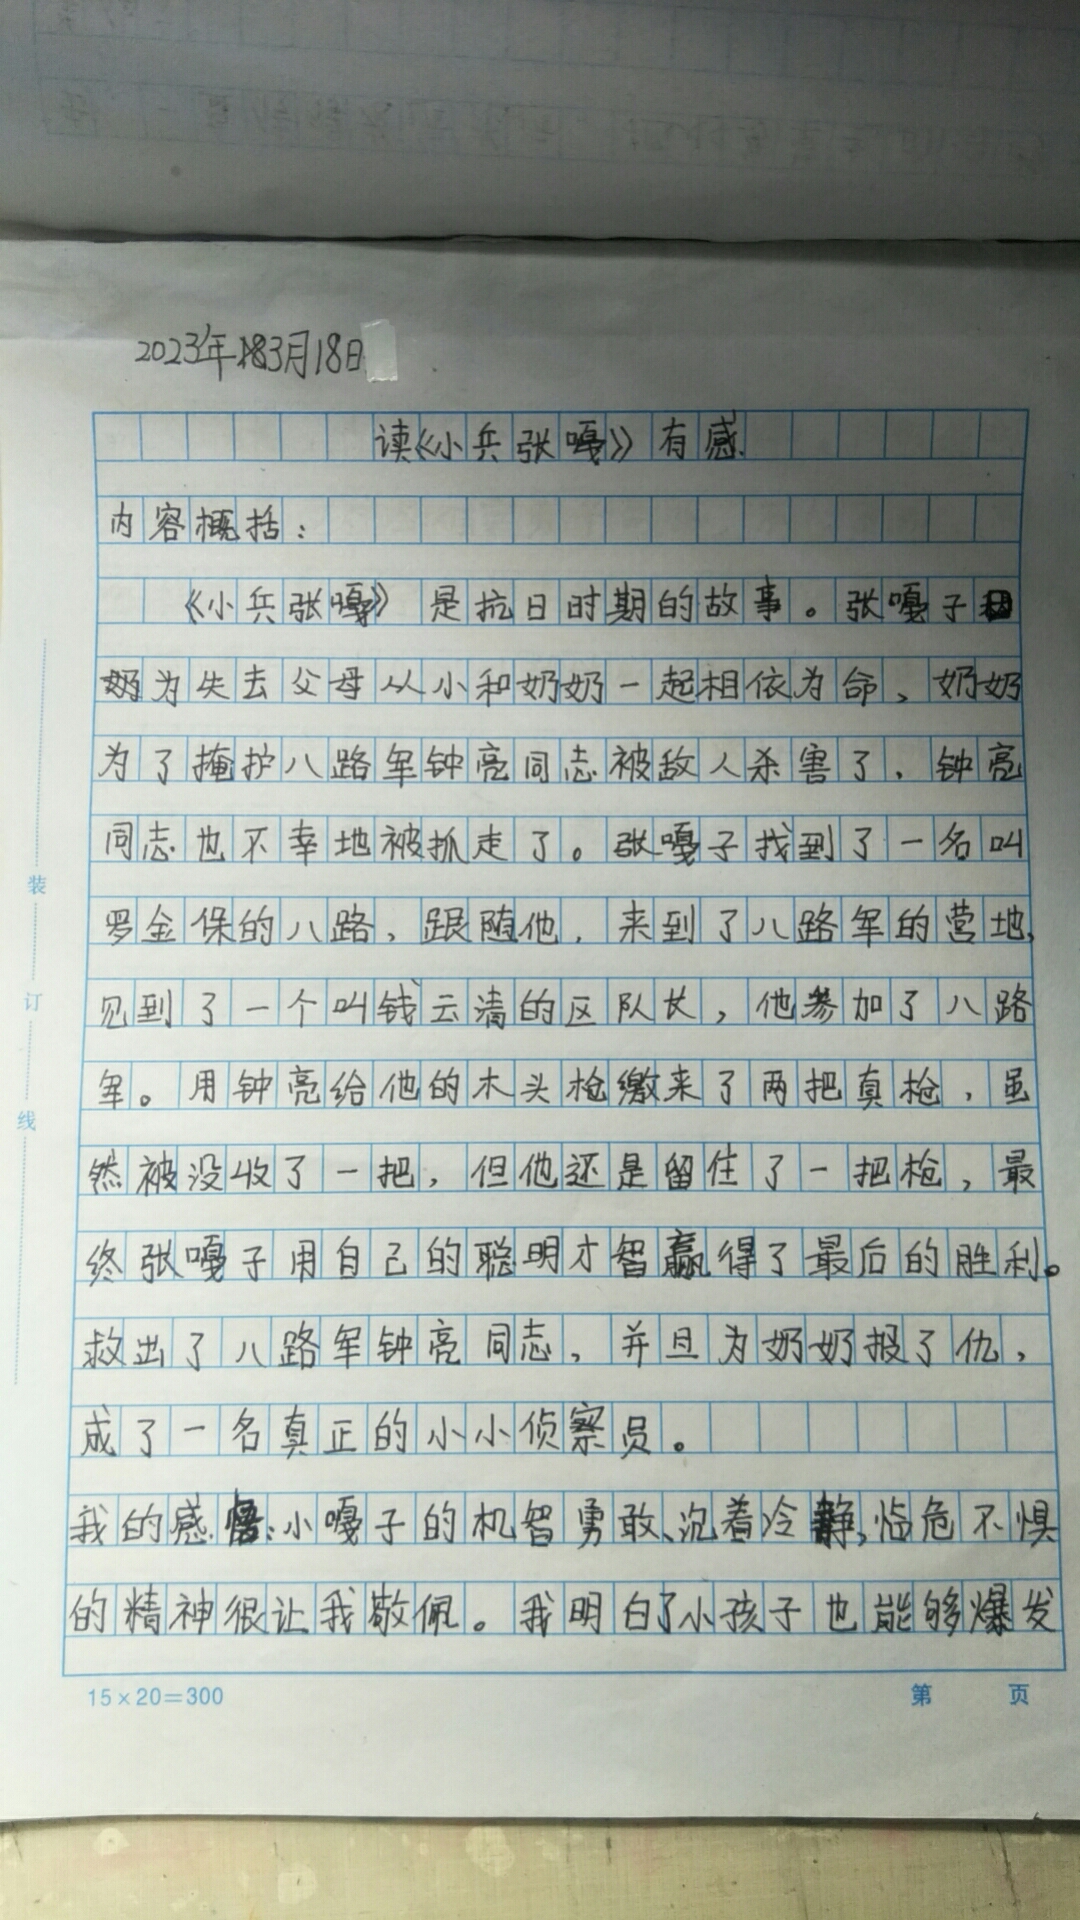 2023年3月18日
读《小兵张嘎》有感
内容概括：
《小兵张嘎》是抗日时期的故事。张嘎子因
为失去父母从小和奶奶一起相依为命，奶奶
为了掩护八路军钟亮同志被敌人杀害了，钟亮
同志也不幸地被抓走了。张嘎子找到了一名叫
罗金保的八路，跟随他，来到了八路军的营地，
见到了一个叫钱云清的区队长，他参加了八路
军。用钟亮给他的木头枪缴来了两把真枪，虽
然被没收了一把，但他还是留住了一把枪，最
终张嘎子用自己的聪明才智赢得了最后的胜利。
救出了八路军钟亮同志，并且为奶奶报了仇，
成了一名真正的小小侦察员。
我的感悟：小嘎子的机智勇敢、沉着冷静，临危不惧
的精神很让我敬佩。我明白了小孩子也能够爆发
装
订
线
15×20=300
第 页